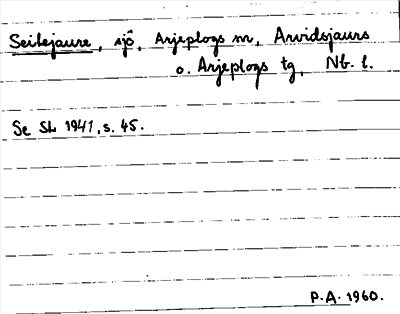 Seitejaure, sjö, Arjeplogs sn, Arvidsjaurs
o. Arjeplogs tg, Nb. l.
Se SL 1941, s. 45.
P.A. 1960.